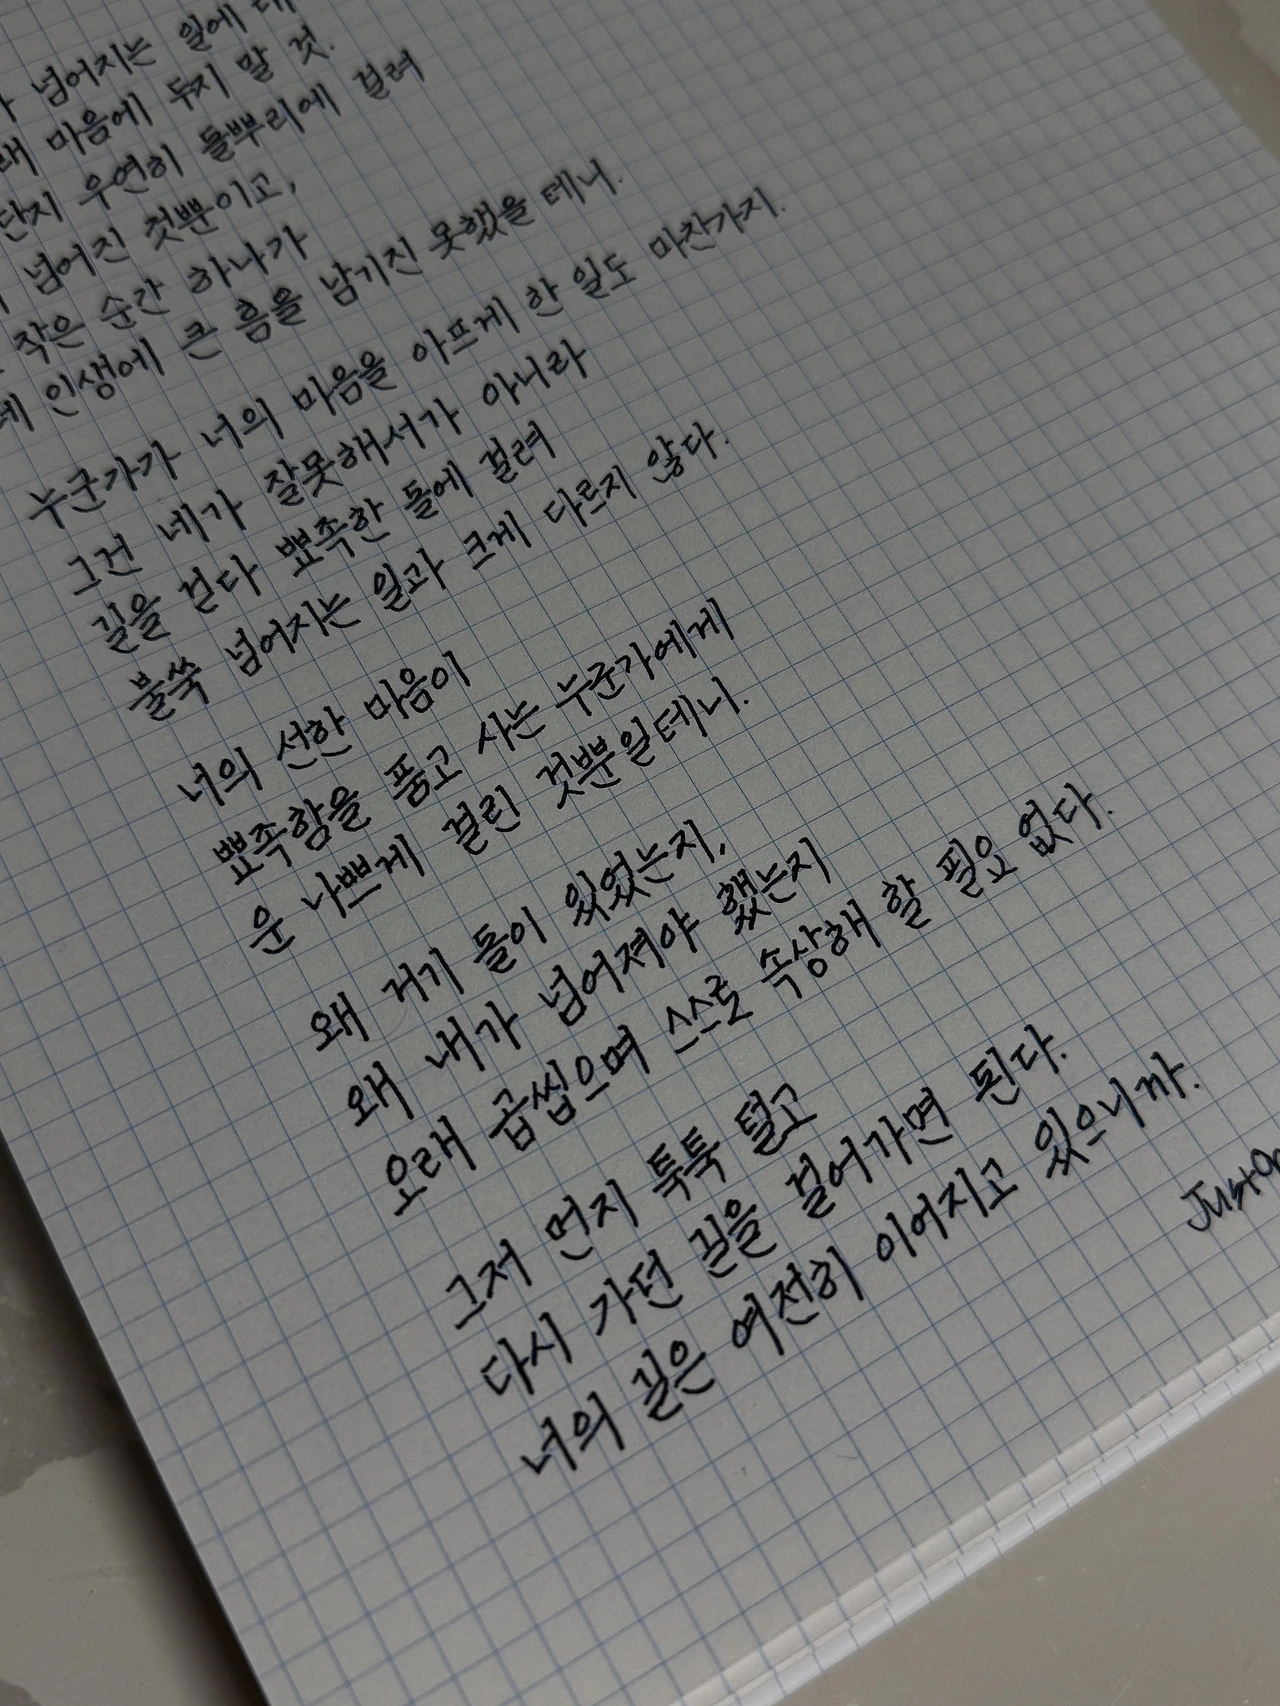 넘어지는 일에
마음에 두지 말 것.
단지 우연히 돌뿌리에 걸려
넘어진 것뿐이고,
작은 순간 하나가
네 인생에 큰 흠을 남기진 못했을 테니.
누군가가 너의 마음을 아프게 한 일도 마찬가지.
그건 네가 잘못해서가 아니라
길을 걷다 뾰족한 돌에 걸려
불쑥 넘어지는 일과 크게 다르지 않다.
너의 선한 마음이
뾰족함을 품고 사는 누군가에게
운 나쁘게 걸린 것뿐일테니.
왜 거기 돌이 있었는지,
왜 내가 넘어져야 했는지
오래 곱씹으며 스스로 속상해 할 필요 없다.
그저 먼지 툭툭 털고
다시 가던 길을 걸어가면 된다.
너의 길은 여전히 이어지고 있으니까.